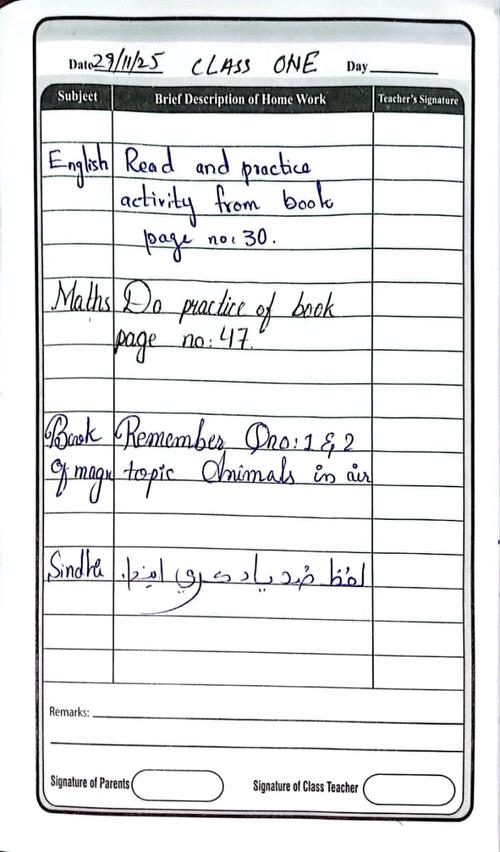 Date 29/11/25 CLASS ONE Day
Subject Brief Description of Home Work Teacher's Signature
English Read and practice
activity from book
page no: 30.
Maths Do practice of book
page no: 47.
Book Remember Qno: 1 & 2
Of magic topic Animals in air
Sindhi لفظ ضد ياد ڪري ايندا.
Remarks:
Signature of Parents Signature of Class Teacher